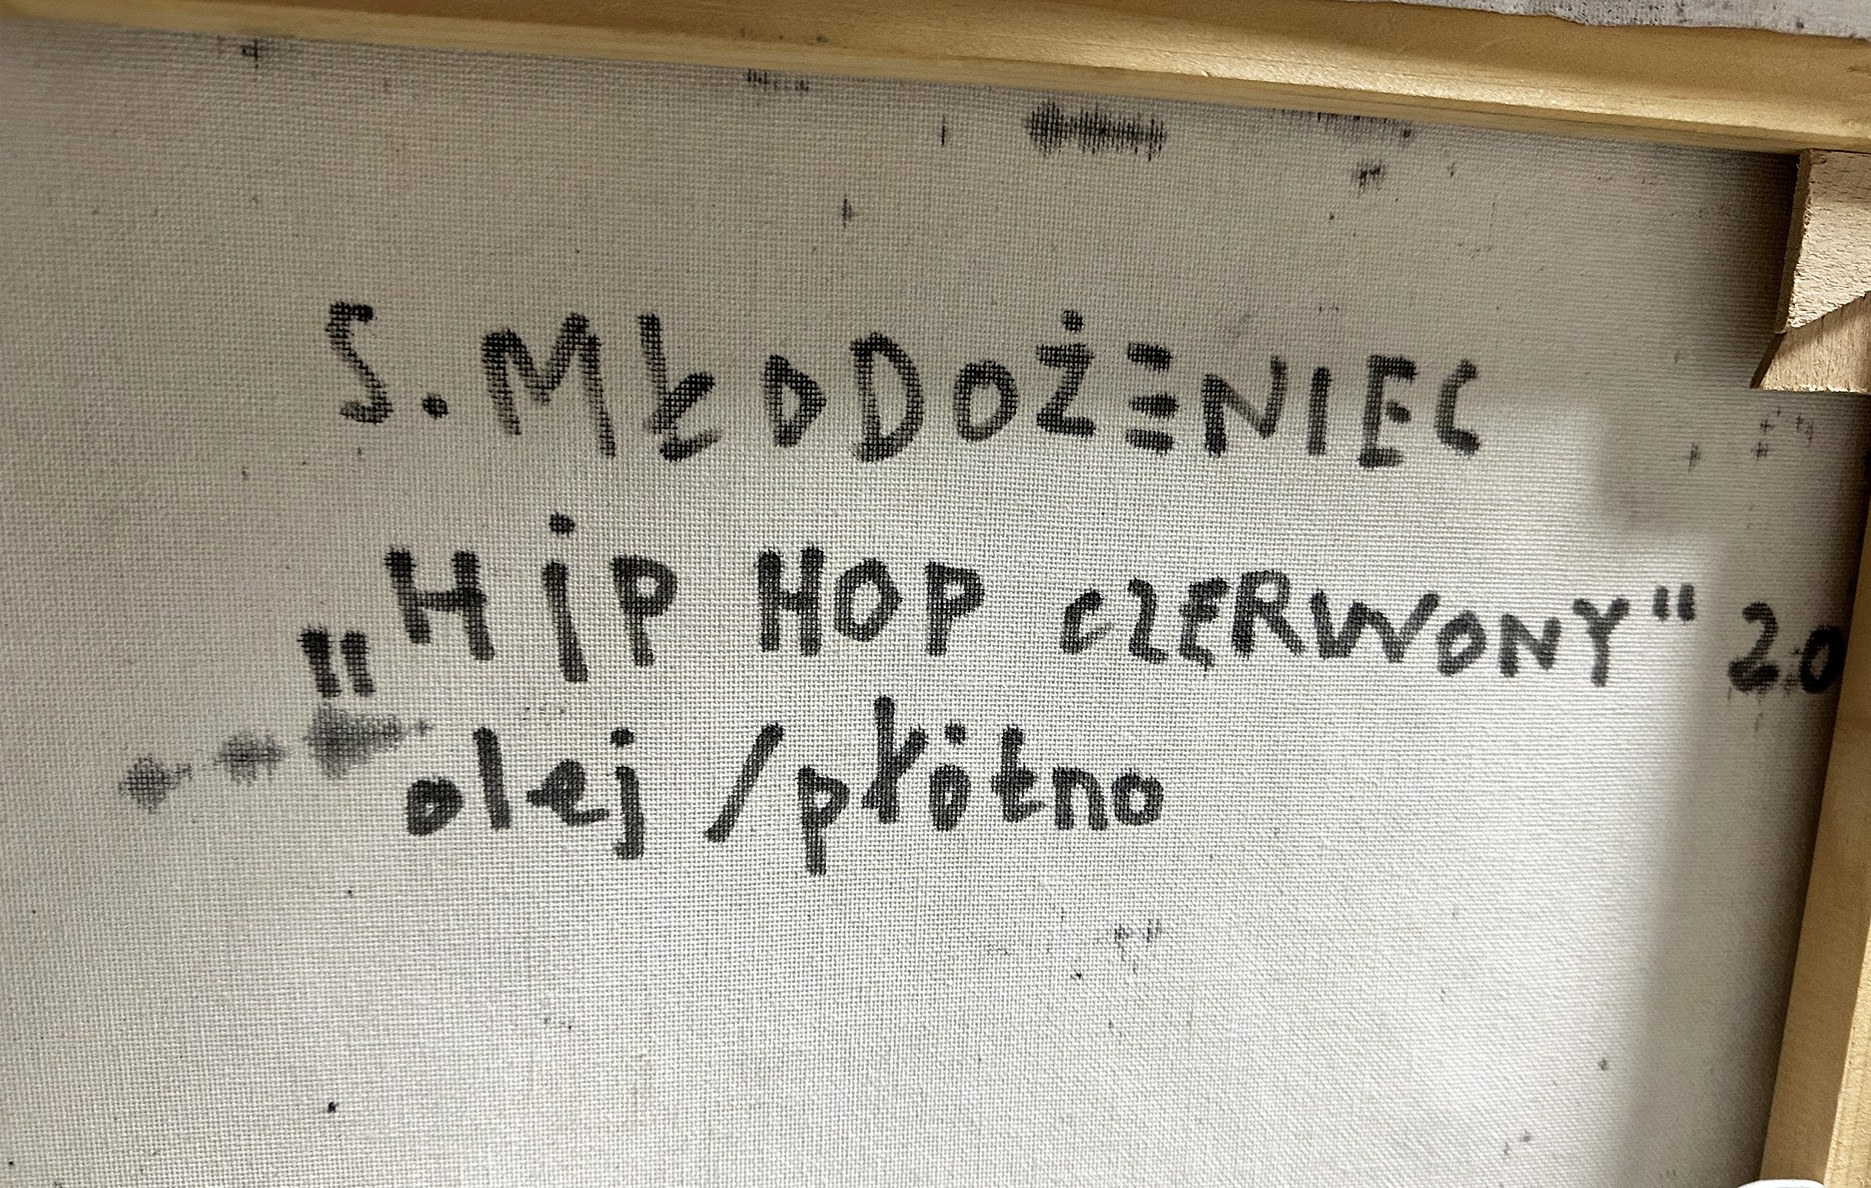 S. MŁODOŻENIEC
„HiP HOP CZERWONY" 20
olej /płótno